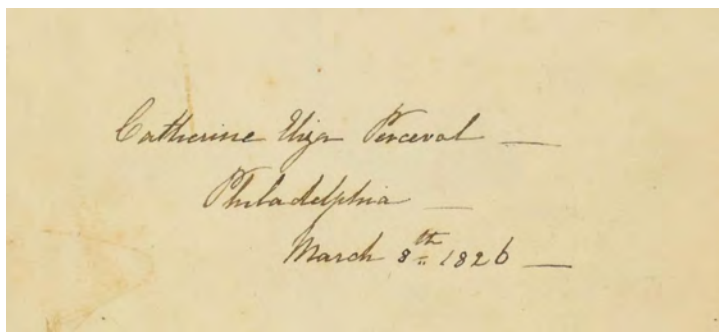 Catherine Eliza Perceval —
Philadelphia —
March 8th 1826 —